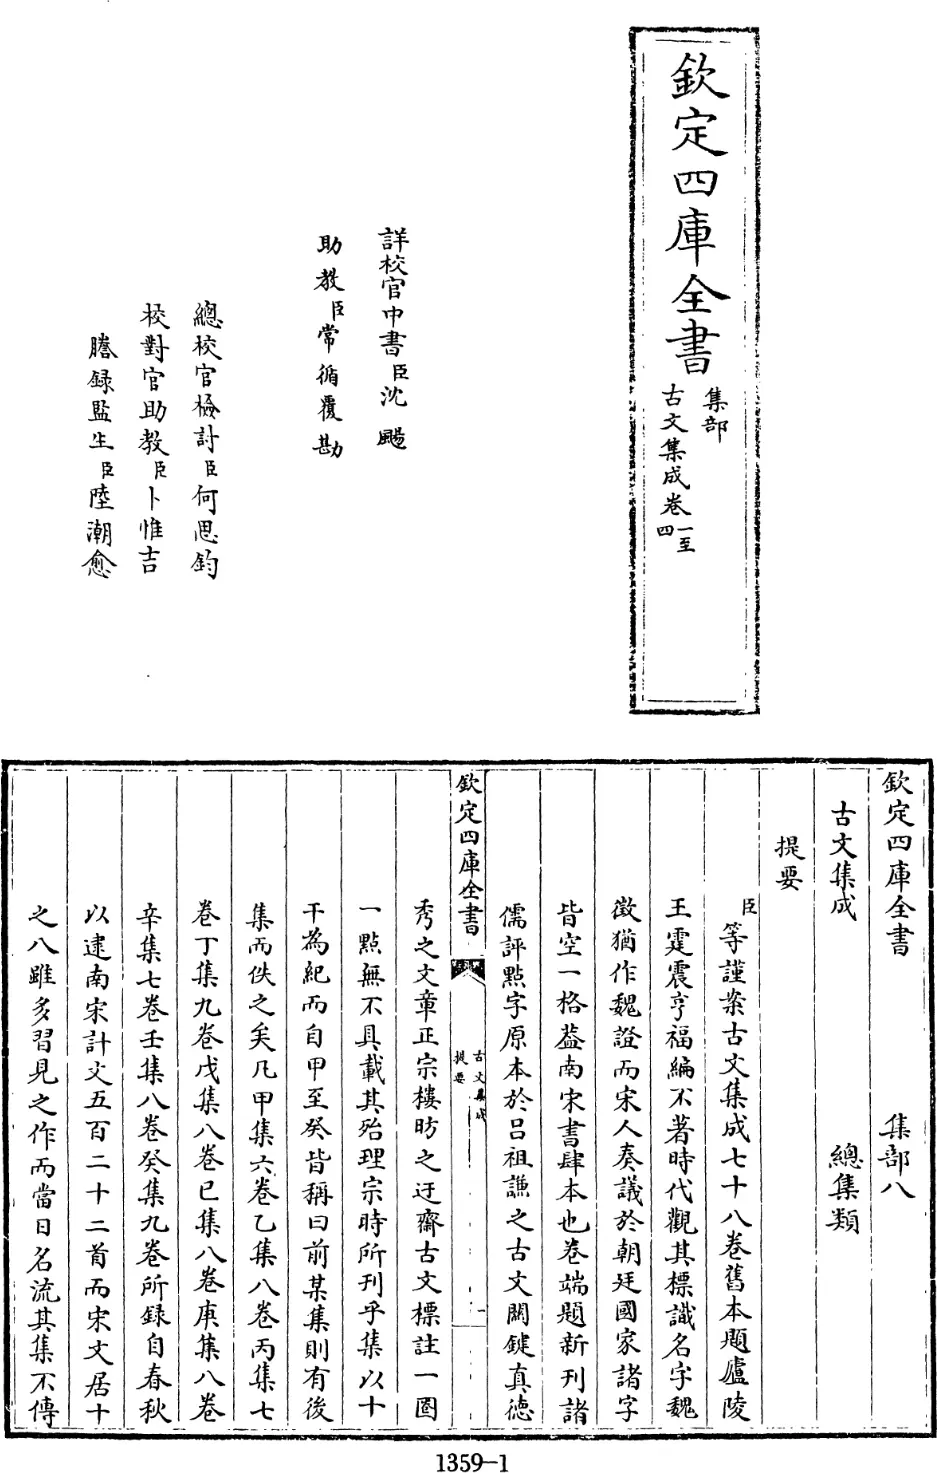 欽定四庫全書
集部
古文集成卷一至四
詳校官中書臣沈颺
助教臣常循覆勘
總校官檢討臣何思鈞
校對官助教臣卜惟吉
謄録監生臣陸潮愈
欽定四庫全書　集部八
古文集成　總集類
提要
臣等謹案古文集成七十八卷舊本題廬陵
王霆震亨福編不著時代觀其標識名字魏
徵猶作魏證而宋人奏議於朝廷國家諸字
皆空一格葢南宋書肆本也卷端題新刊諸
儒評點字原本於吕祖謙之古文關鍵真德
欽定四庫全書
古文集成
提要
一
秀之文章正宗樓昉之迂齋古文標註一圈
一點無不具載其殆理宗時所刊乎集以十
干為紀而自甲至癸皆稱曰前某集則有後
集而佚之矣凡甲集六卷乙集八卷丙集七
卷丁集九卷戊集八卷己集八卷庚集八卷
辛集七卷壬集八卷癸集九卷所録自春秋
以逮南宋計文五百二十二首而宋文居十
之八雖多習見之作而當日名流其集不傳
1359-1